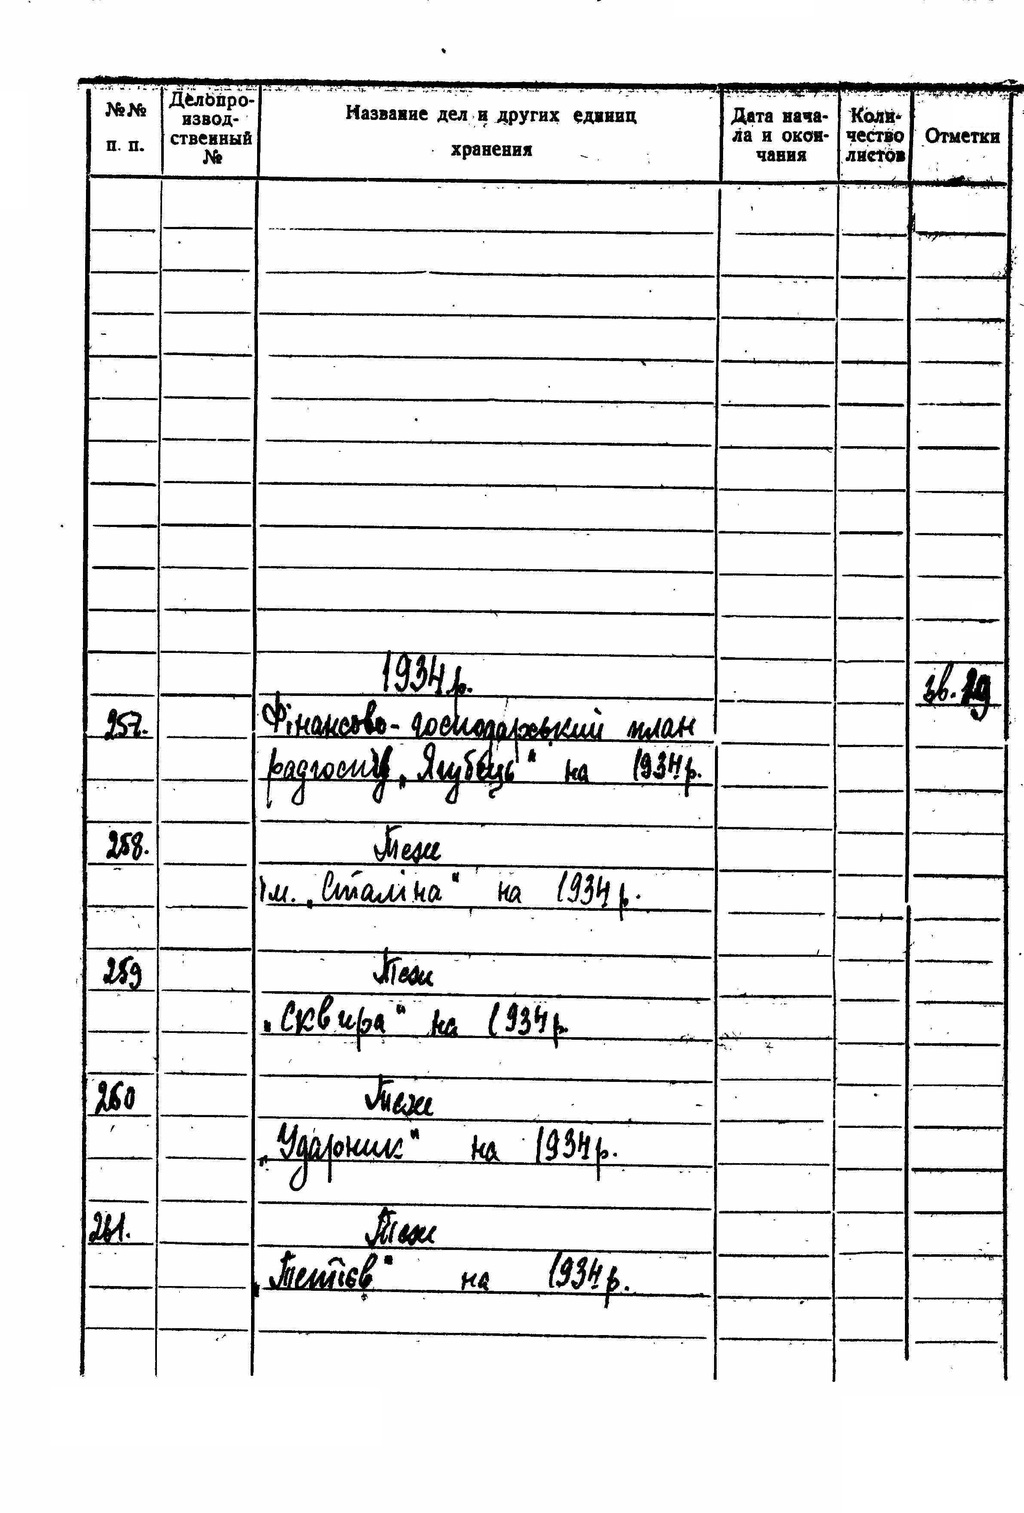 №№ п. п.
Делопроизводственный №
Название дел и других единиц хранения
Дата начала и окончания
Количество листов
Отметки
1934 р.
зв. 29
257. Фінансово-господарський план
радгоспів „Ягубець" на 1934 р.
258. Теж
ім. „Сталіна" на 1934 р.
259 Теж
„Сквира" на 1934 р.
260 Теж
„Ударник" на 1934 р.
261. Теж
„Тетіїв" на 1934 р.